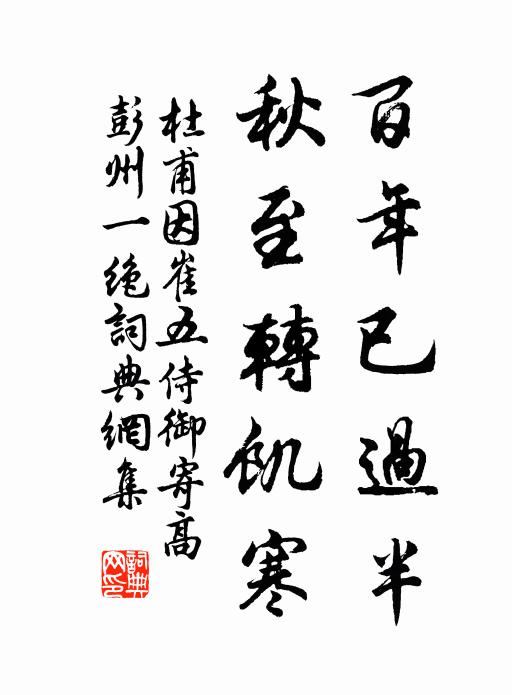 百年已過半
秋至轉飢寒
杜甫因崔五侍御寄高
彭州一絕詞典網集
詞典
网印